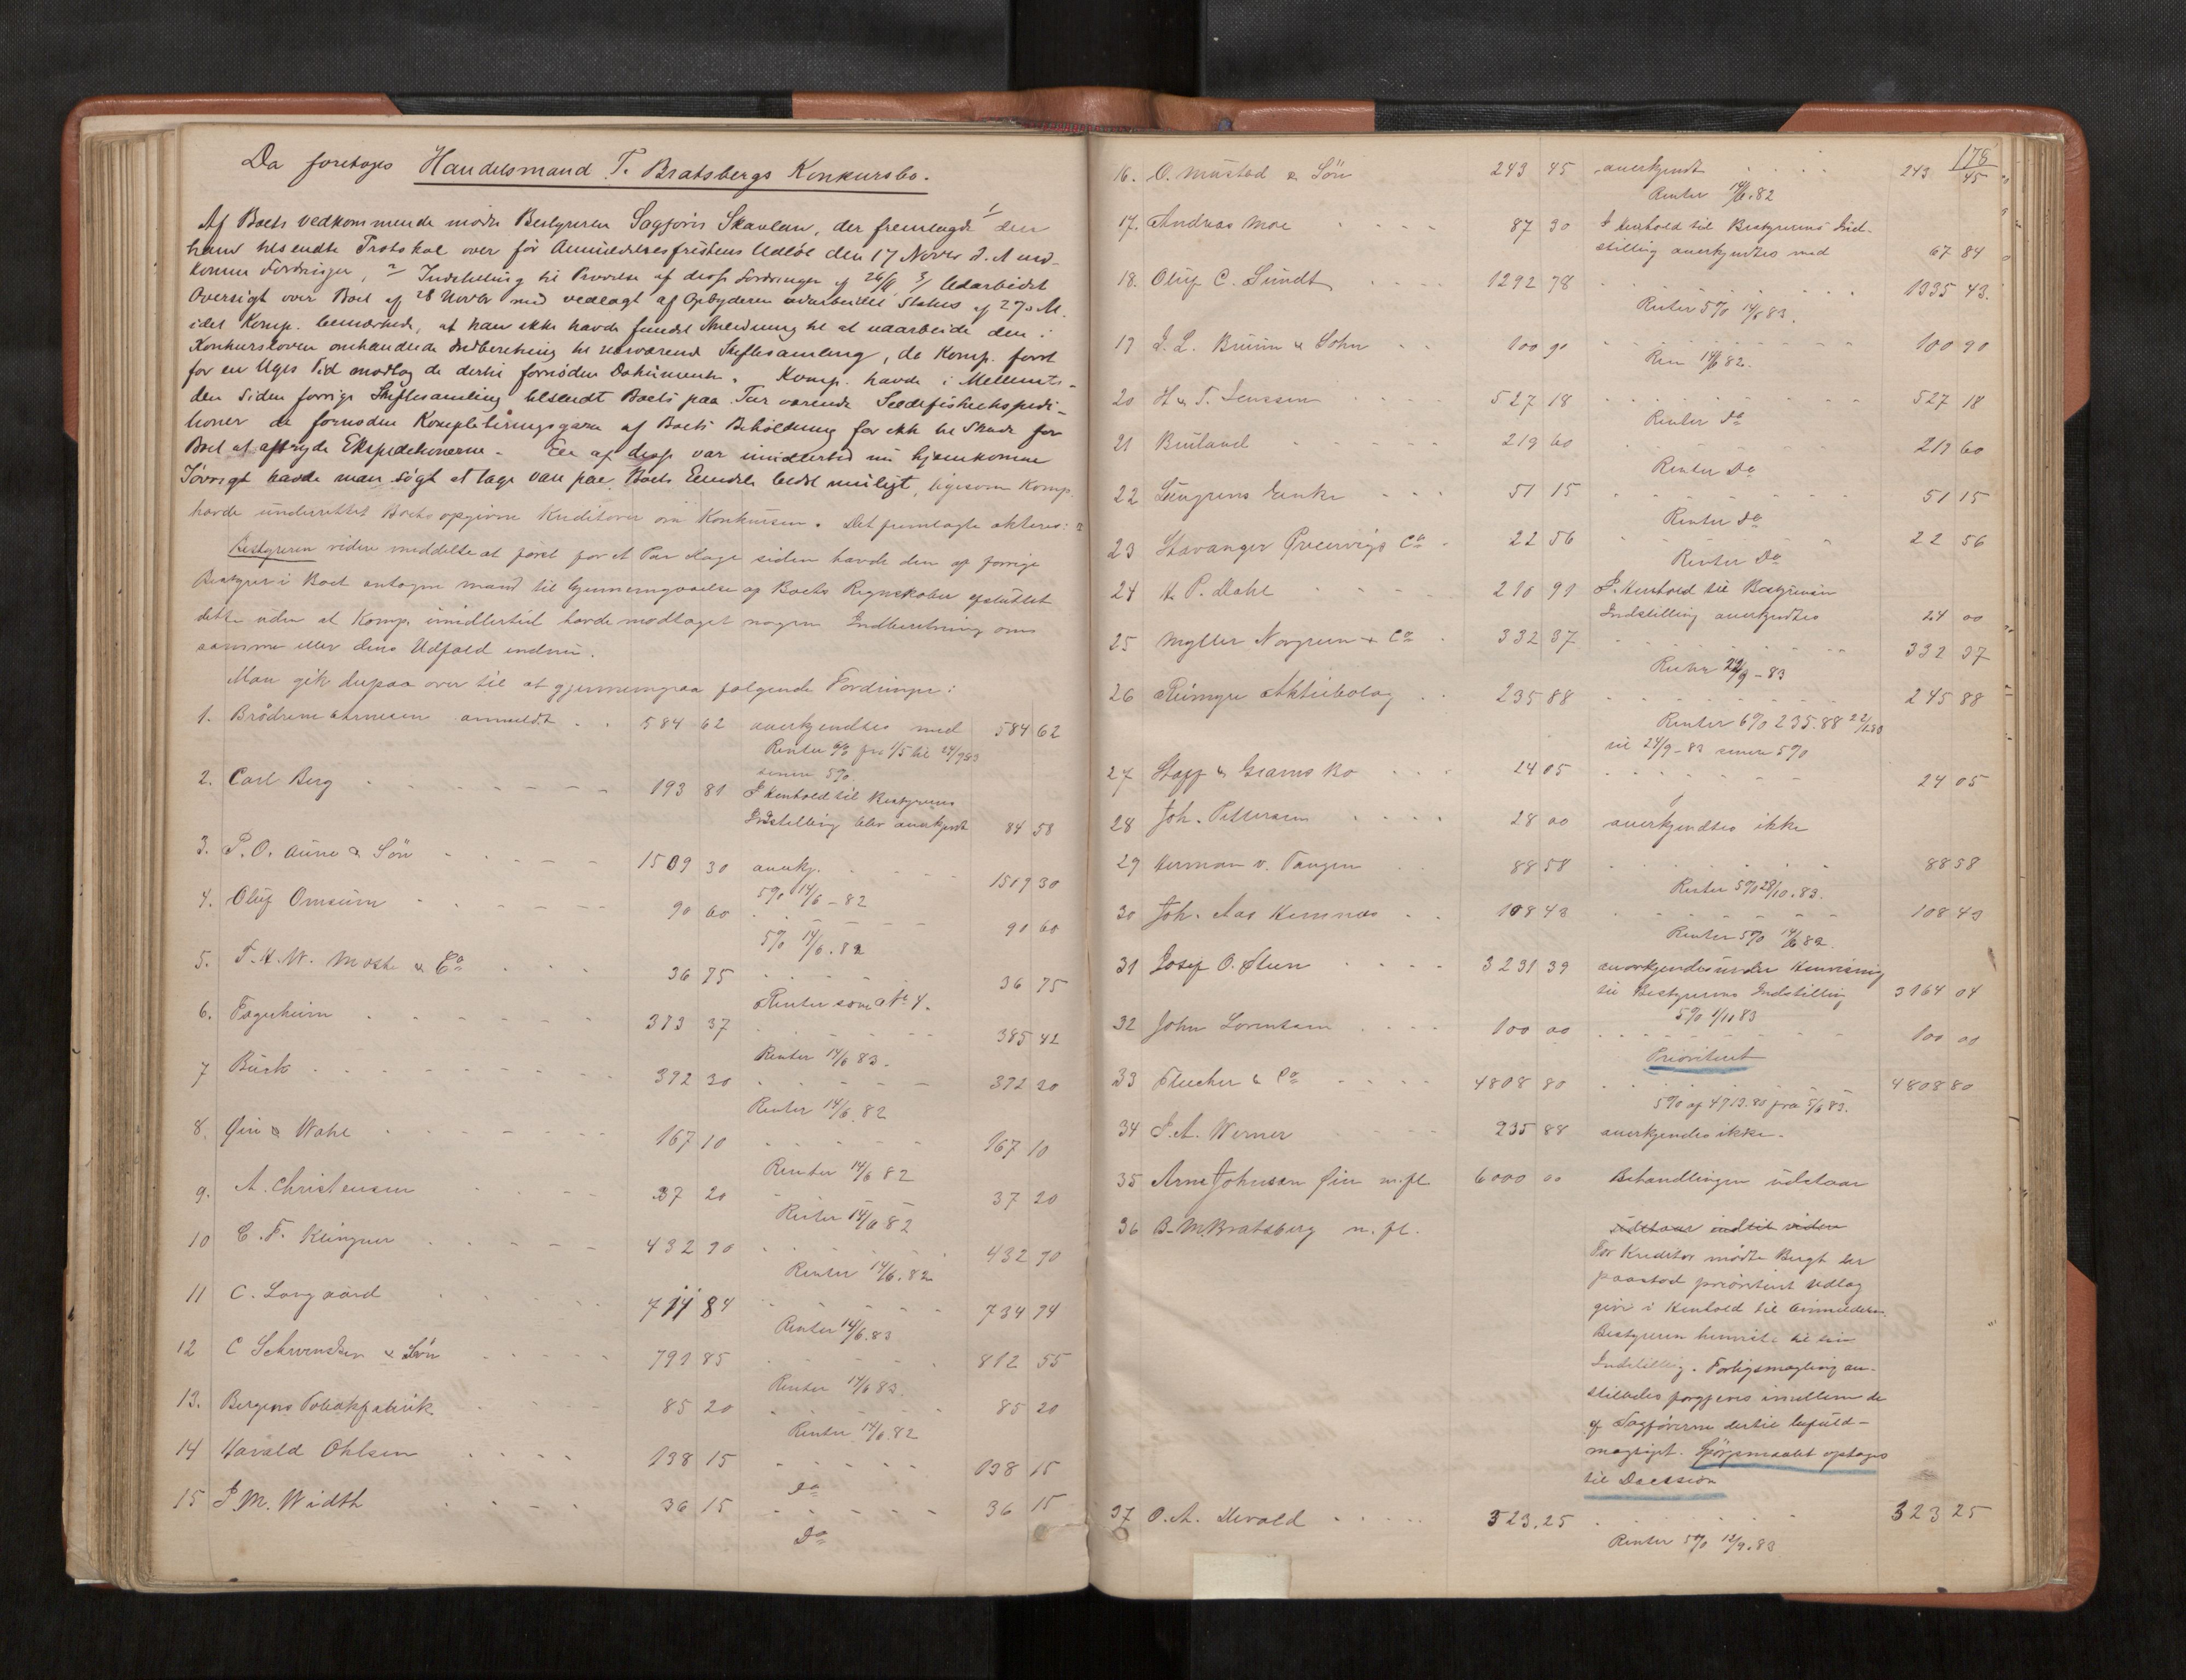 Da foretoges Handelsmand T. Bratsbergs Konkursbo.
Af Boets Vedkommende mødte Bestyreren Sagfører Skavlan, der fremlagde 1/ den
ham tilsendte Protokol over før Anmeldelsesfristens Udløb den 17 Novbr d. A ind-
komne Fordringer, 2/ Indstilling til Prøvelse af disse Fordringer af 26/11 3/ Udarbeidet
Oversigt over Boet af 28 Novbr med vedlagt af Opbyderen udarbeidet Status af 27 s. M.
idet Komp. bemærkede, at han ikke havde fundet Anledning til at udarbeide den i
Konkursloven omhandlede Indberetning til nærværende Skiftesamling, da Komp. først
for en Uges Tid modtog de dertil fornødne Dokumenter. Komp. havde i Mellemti-
den siden forrige Skiftesamling tilsendt Boets paa Tur værende Sildefiskeekspedi-
tioner de fornødne Kompletteringsgarn af Boets Beholdning for ikke til Skade for
Boet at afbryde Ekspeditionerne. En af disse var imidlertid nu hjemkommen
Iøvrigt havde man søgt at tage vare paa Boets Eiendele bedst muligt, ligesom Komp.
havde underrettet Boets opgivne Kreditorer om Konkursen. Det fremlagte akteres:
Bestyreren videre meddelte at først for et Par Dage siden havde den af forrige
Bestyrer i Boet antagne Mand til Gjennemgaaelse af Boets Regnskaber afsluttet
dette uden at Komp. imidlertid havde modtaget nogen Indberetning om
samme eller dens Udfald endnu.
Man gik derpaa over til at gjennemgaa følgende Fordringer:
1. Brødrene Arnesen anmeldt . . 584 62 anerkjendtes med 584 62
Renter 6% fra 1/5 til 24/9 83
senere 5%
2. Carl Berg 193 81 I Henhold til Bestyrerens
Indstilling blev anerkjendt 84 58
3. P. O. Aune & Søn 1509 30 anerkj. 1509 30
5% 14/6 - 82
4. Oluf Omsum 90 60 90 60
5% 14/6. 82
5. T. H. W. & Co 36 75 36 75
Renter som No 4.
6. Fagerheim 373 37 385 42
Renter 14/6 83.
7 Buck 392 20 392 20
Renter 14/6 82
8. Øien & Wahl 167 10 167 10
Renter 14/6 82
9. A. Christensen 37 20 37 20
Renter 14/6 82
10 C. F. Klingner 432 90 432 90
Renter 14/6. 82
11 C. Langaard 714 84 734 94
Renter 14/6. 83
12 C Schwendsen & Søn 791 85 812 55
Renter 14/6 83.
13. Bergens Tobakfabrik 85 20 85 20
Renter 14/6 82
14 Harald Ohlsen 138 15 138 15
Do
15 J. M. Width 36 15 36 15
Do
178
16. O. Mustad & Søn 243 45 anerkjendt 243 45
Renter 14/6. 82
17. Andreas Moe 87 30 I Henhold til Bestyrerens Ind-
stilling anerkjendtes med 67 84
18. Oluf C. Sundt 1292 78 1335 43.
Renter 5% 14/6 83.
19 J. L. Bruun & Sohn 100 90 100 90
Ren 14/6 82.
20 H & T. Jenssen 527 18 527 18
Renter Do
21 Buuland 219 60 219 60
Renter Do
22 Lungrens Enke 51 15 51 15
Renter Do
23 Stavanger Preservings Co 22 56 22 56
Renter Do
24 H. P. Dahl 210 91 I Henhold til Bestyrerens
Indstilling anerkjendtes 24 00
25 Møller Norgreen & Co 332 37 332 37
Renter 24/9 - 83
26 Reimyre Aktiebolag 235 88 245 88
Renter 6% 235.88 22/1 80
til 24/9 - 83 senere 5%
27 24 05 24 05
28 Joh. Pettersen 28 00 anerkjendtes ikke
29 Herman v. Tangen 88 58 88 58
Renter 5% 28/10. 83.
30 Joh. Aas Hemnæs 108 43 108 43
Renter 5% 14/6 82.
31 Josef O. Øien 3231 39 anerkjendes under Henvisning
til Bestyrerens Indstilling 3164 04
5% 1/11 83
32 John Lorentsen 100 00 100 00
Prioritert
33 Fleischer & Co 4808 80 4808 80
5% af 4713.80 fra 5/6 83.
34 J. A. Werner 235 88 anerkjendes ikke.
35 Arne Johnsen Øien m. fl. 6000 00 Behandlingen udstaar
36 B. M. Bratsberg m. fl. udstaar indtil videre
For Kreditor mødte Bergh der
paastod prioritert Udlæg
givet i Henhold til Anmeldelsen.
Bestyreren henviste til sin
Indstilling. Forligsmægling an-
stilledes forgjæves imellem de
af Sagførerne dertil befuld-
mægtiget. Spørgsmaalet optages
til Decision
37 O. A. Hevold 323.25 323 25
Renter 5% 12/9. 83